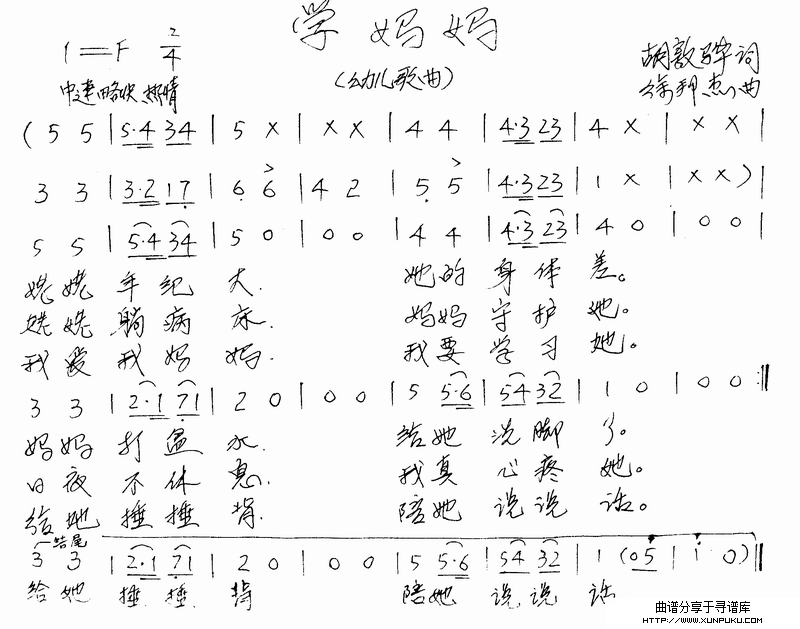 学妈妈
(幼儿歌曲)
1=F 2/4
胡敦骅词
中速略快 热情
徐邦杰曲
(5 5 | 5·4 34 | 5 X | X X | 4 4 | 4·3 23 | 4 X | X X |
3 3 | 3·2 17 | 6 6 | 4 2 | 5 5 | 4·3 23 | 1 X | X X) |
5 5 | 5·4 34 | 5 0 | 0 0 | 4 4 | 4·3 23 | 4 0 | 0 0 |
姥姥 年纪 大. 她的 身体 差。
姥姥 躺病 床. 妈妈 守护 她。
我爱 我妈 妈. 我要 学习 她。
3 3 | 2·1 71 | 2 0 | 0 0 | 5 5·6 | 54 32 | 1 0 | 0 0 :||
妈妈 打盆 水. 给她 洗脚 了。
日夜 不休 息. 我真 心疼 她。
给她 捶捶 背. 陪她 说说 话。
结尾
3 3 | 2·1 71 | 2 0 | 0 0 | 5 5·6 | 54 32 | 1 (05 | 1 0) ||
给她 捶捶 背 陪她 说说 话
曲谱分享于寻谱库
HTTP://WWW.XUNPUKU.COM